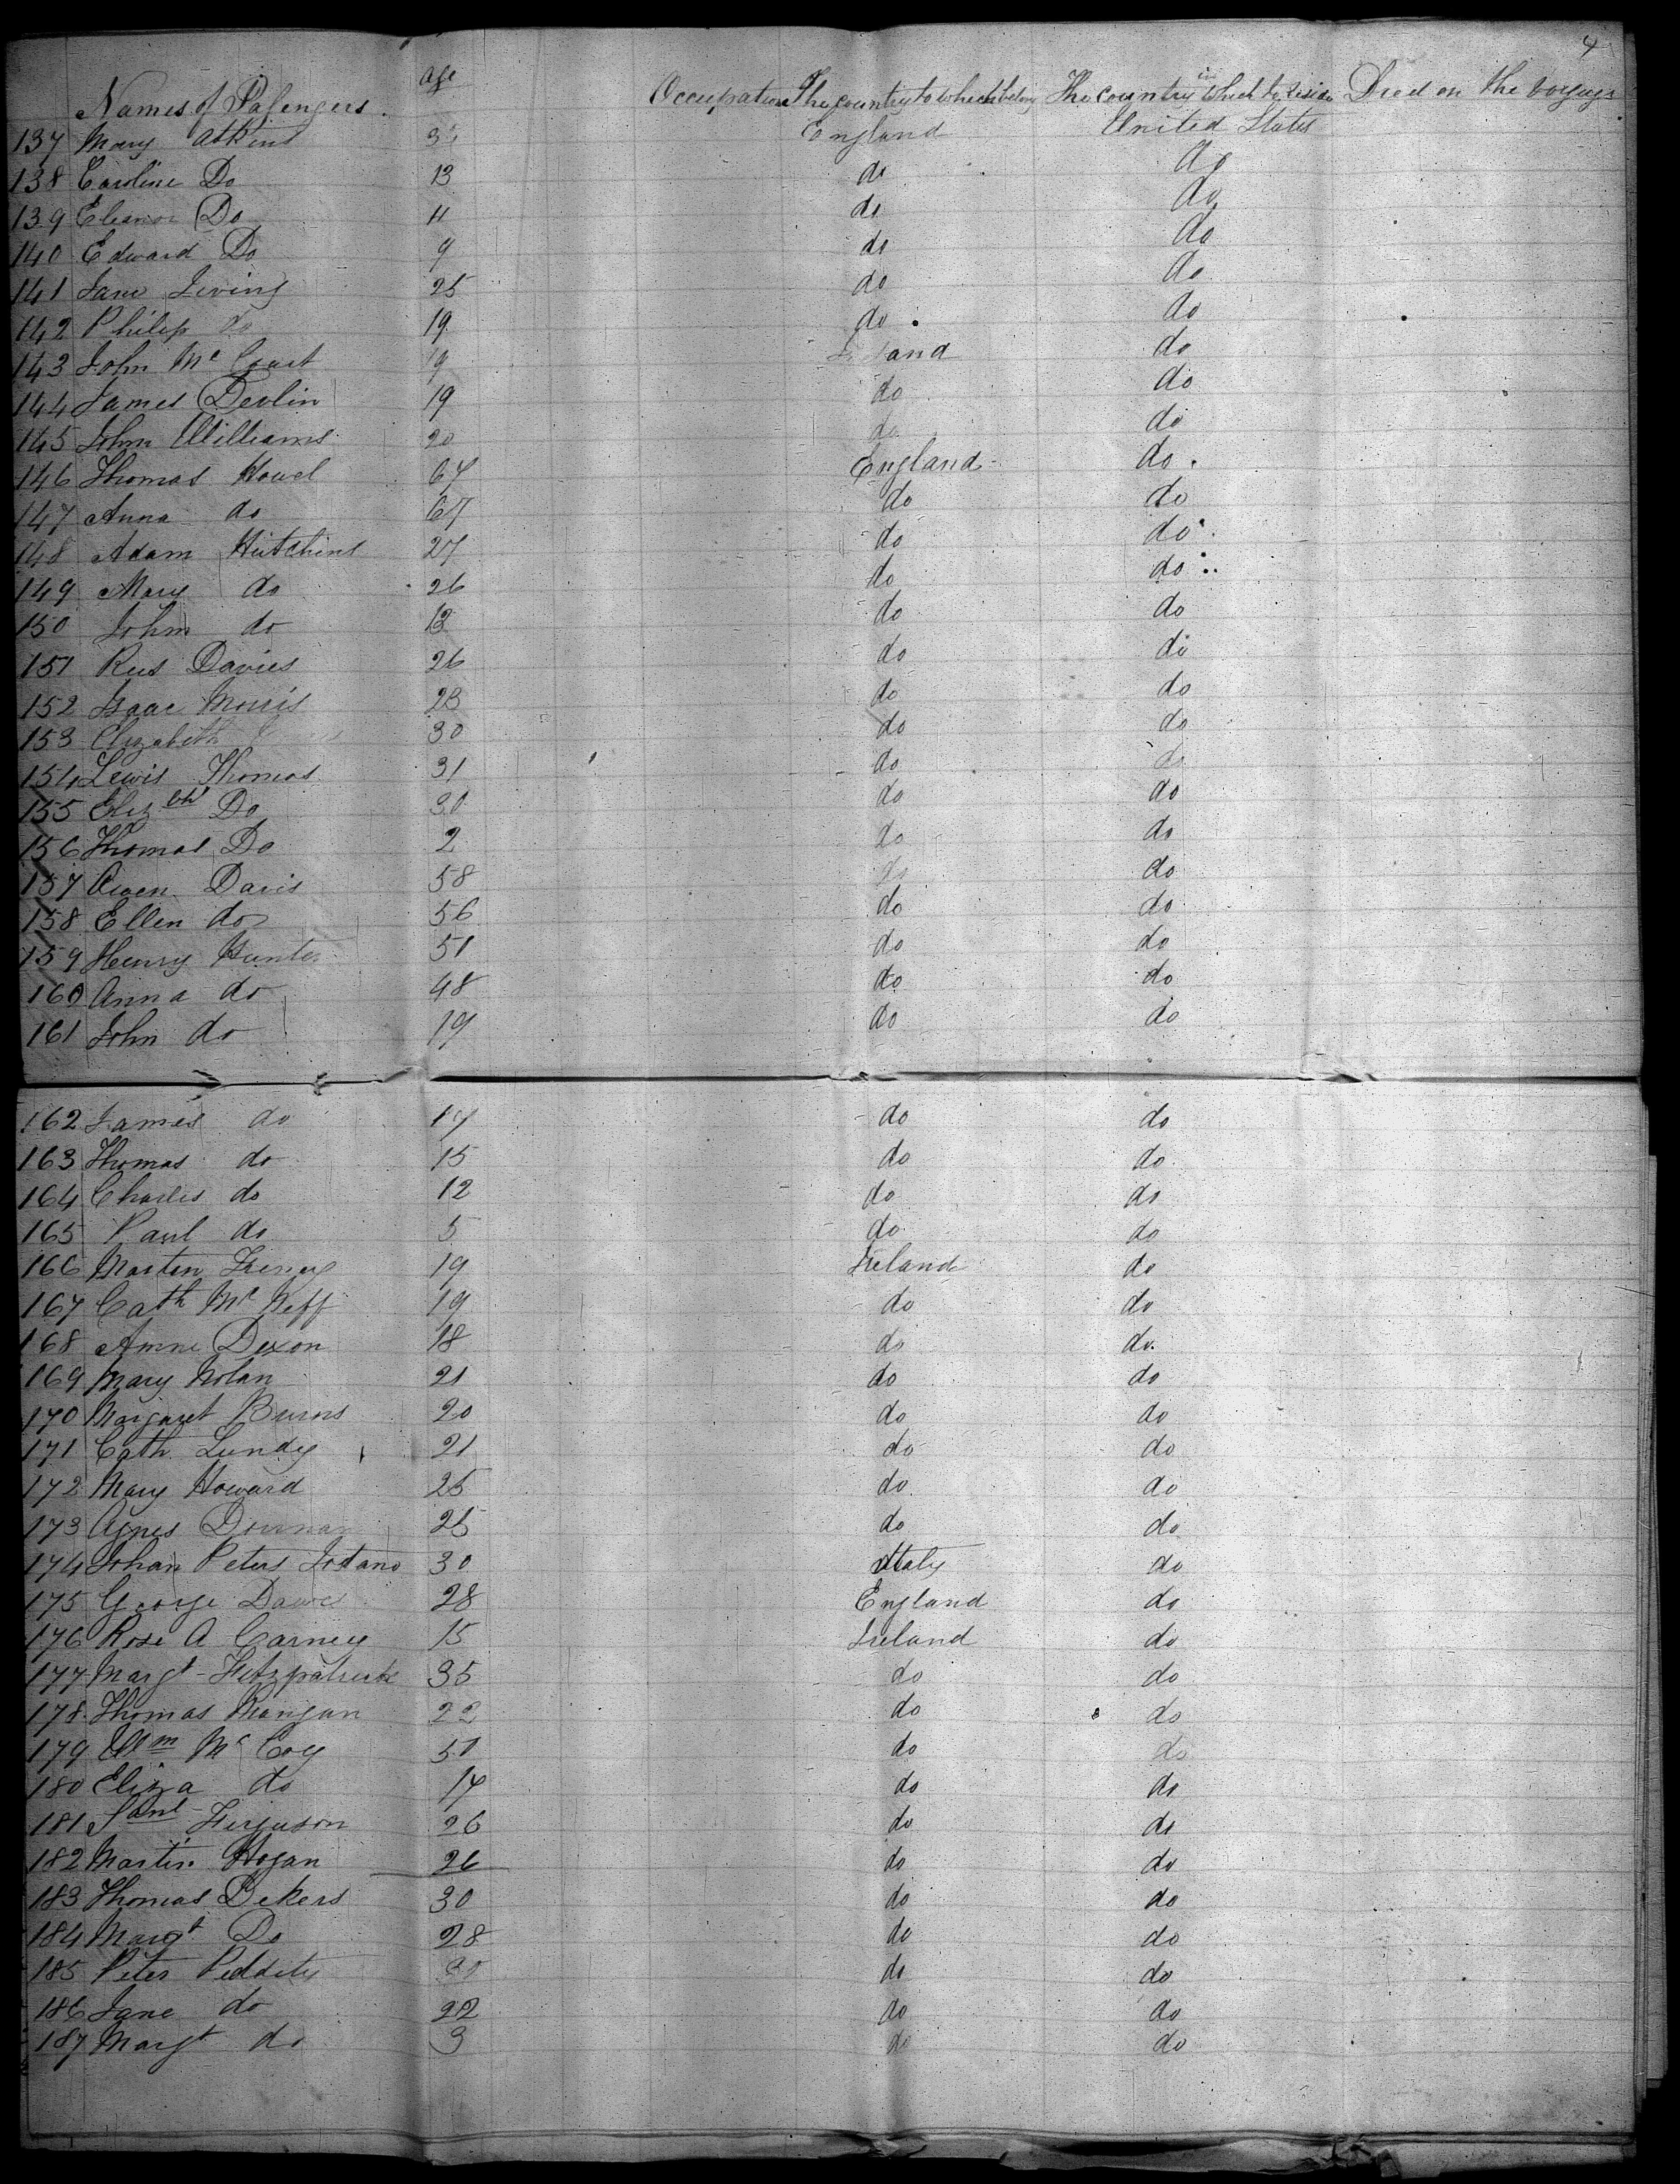 4
Names of Pasengers. age Occupation The country to which belong The country in which to reside Died on the voyage
137 Mary Atkins England United States
138 Caroline Do 13 do do
139 Eleanor Do 11 do do
140 Edward Do 9 do do
141 Jane Irving 25 do do
142 Philip do 19 do do
143 John Mc Court 19 Ireland do
144 James Devlin 19 do do
145 John Williams 20 do do
146 Thomas Howel 67 England do
147 Anna do 67 do do
148 Adam Hutchins 27 do do
149 Mary do 26 do do
150 John do do do
151 Rees Davies 26 do do
152 Isaac Morris 23 do do
153 Elizabeth 30 do do
154 Lewis Thomas 31 do do
155 Eliz bth Do 30 do do
156 Thomas Do 2 do do
157 Owen Davis 58 do do
158 Ellen do 56 do do
159 Henry Hunter 51 do do
160 Anna do 48 do do
161 John do 19 do do
162 James do 17 do do
163 Thomas do 15 do do
164 Charles do 12 do do
165 Paul do 5 do do
166 Marten 19 Ireland do
167 Cath Mc Neff 19 do do
168 Anne Dixon 18 do do
169 Mary Nolan 21 do do
170 Margaret Burns 20 do do
171 Cath Lundy 21 do do
172 Mary Howard 25 do do
173 Agnes Dornan 25 do do
174 Johan Peters 30 Italy do
175 George Dawes 28 England do
176 Rose A Carney 15 Ireland do
177 Margt Fitzpatrick 35 do do
178 Thomas Mangan 22 do do
179 Wm Mc Coy 51 do do
180 Eliza do 17 do do
181 Saml Ferguson 26 do do
182 Martin Hogan 26 do do
183 Thomas Dekers 30 do do
184 Margt Do 28 do do
185 Peter 30 do do
186 Jane do 22 do do
187 Margt do 3 do do